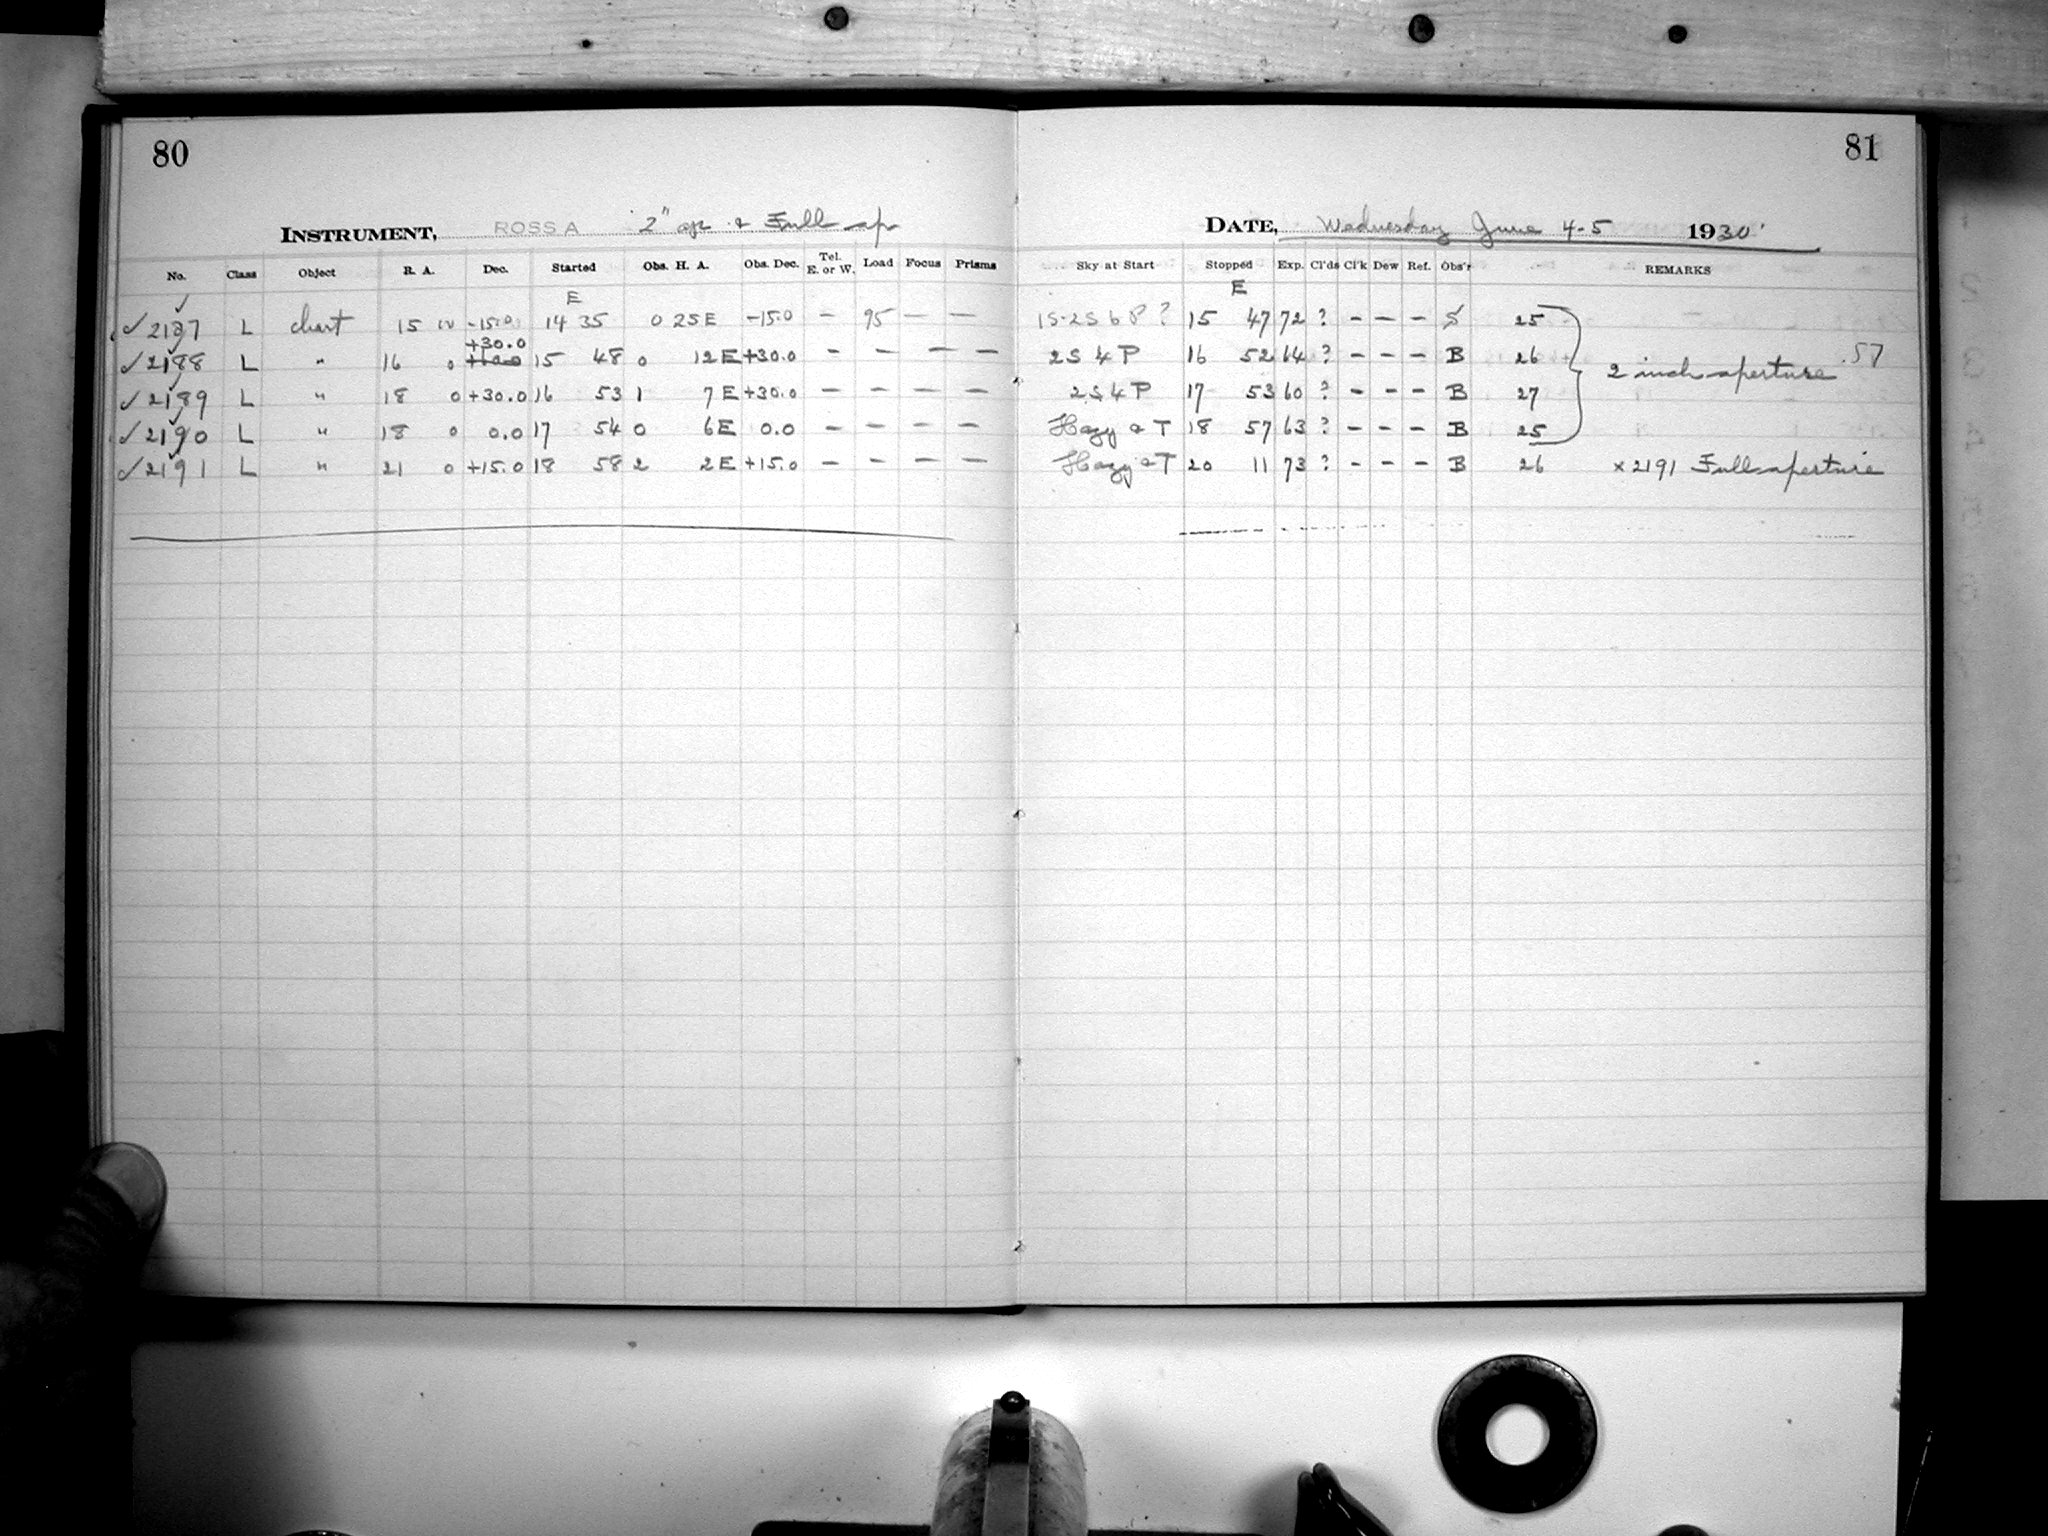 80
81
INSTRUMENT, ROSS A 2" ap & Full ap
DATE, Wednesday June 4-5 1930
No. Class Object R. A. Dec. Started Obs. H. A. Obs. Dec. Tel. E. or W. Load Focus Prisms Sky at Start Stopped Exp. Cl'ds Cl'k Dew Ref. Obs'r REMARKS
E E
✓ 2187 L chart 15 0 -15.0 14 35 0 25 E -15.0 — 95 — — 1S-2S 6 P ? 15 47 72 ? - - - S 25
+30.0
✓ 2188 L " 16 0 15 48 0 12 E +30.0 — — — — 2S 4 P 16 52 64 ? - - - B 26
2 inch aperture .57
✓ 2189 L " 18 0 +30.0 16 53 1 7 E +30.0 — — — — 2S 4 P 17 53 60 ? - - - B 27
✓ 2190 L " 18 0 0.0 17 54 0 6 E 0.0 — — — — Hazy & T 18 57 63 ? - - - B 25
✓ 2191 L " 21 0 +15.0 18 58 2 2 E +15.0 — — — — Hazy & T 20 11 73 ? - - - B 26 × 2191 Full aperture